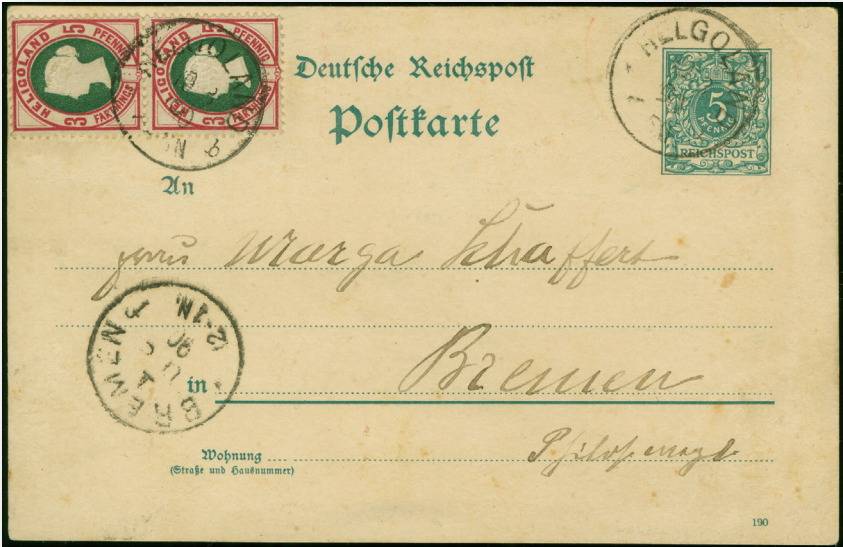 HELIGOLAND 5 PFENNIG 3 FARTHINGS
HELIGOLAND 5 PFENNIG 3 FARTHINGS
HELIGOLAND
Deutsche Reichspost
Postkarte
HELGOLAND
5
PFENNIG
REICHSPOST
An
Marga Schaffert
BREMEN 1
90
12-1N.
in Bremen
Wohnung
(Straße und Hausnummer)
190